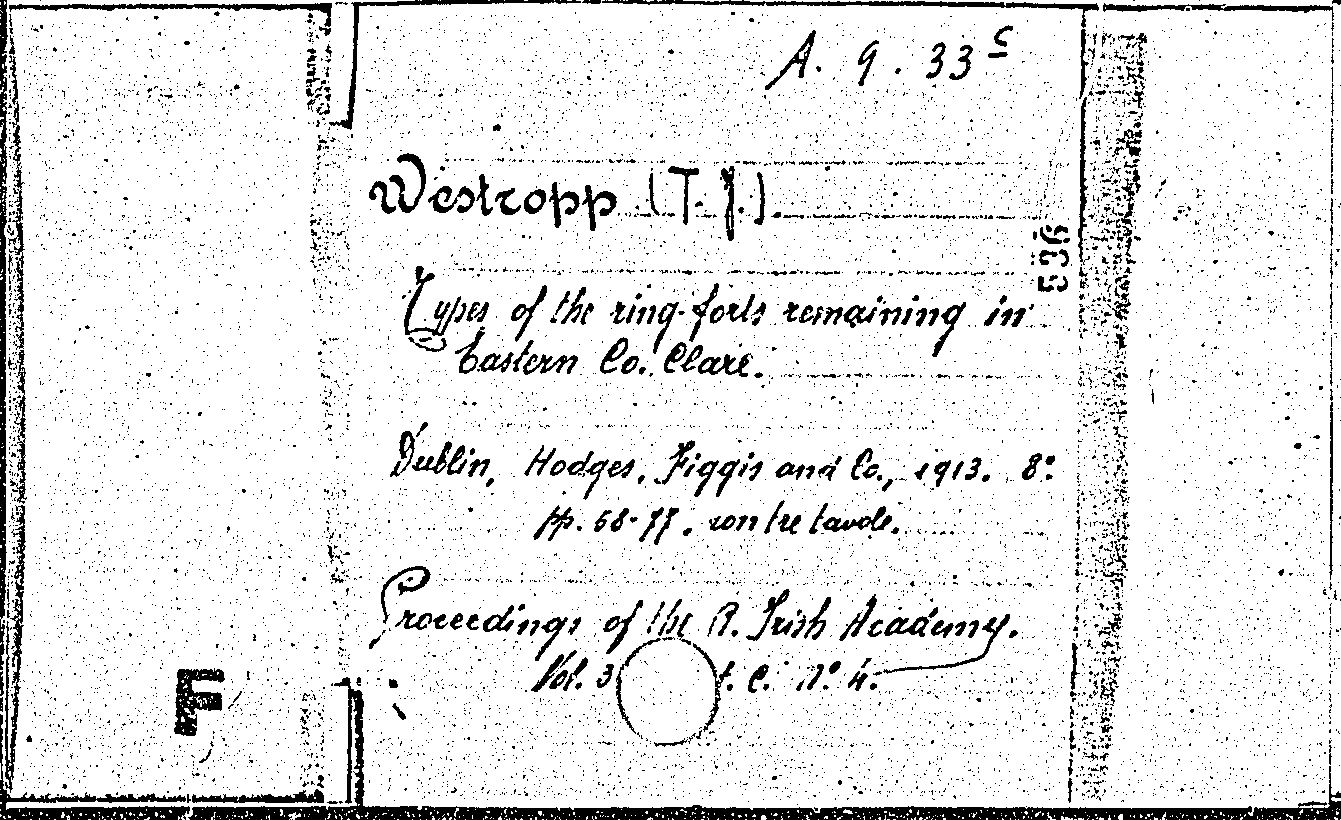 A. 9. 33 c
Westropp (T. J.).
536
Types of the ring-forts remaining in
Eastern Co. Clare.
Dublin, Hodges, Figgis and Co., 1913. 8°
pp. 58-77. con tre tavole.
Proceedings of the R. Irish Academy.
Vol. 3 t. C. N° 4.
F